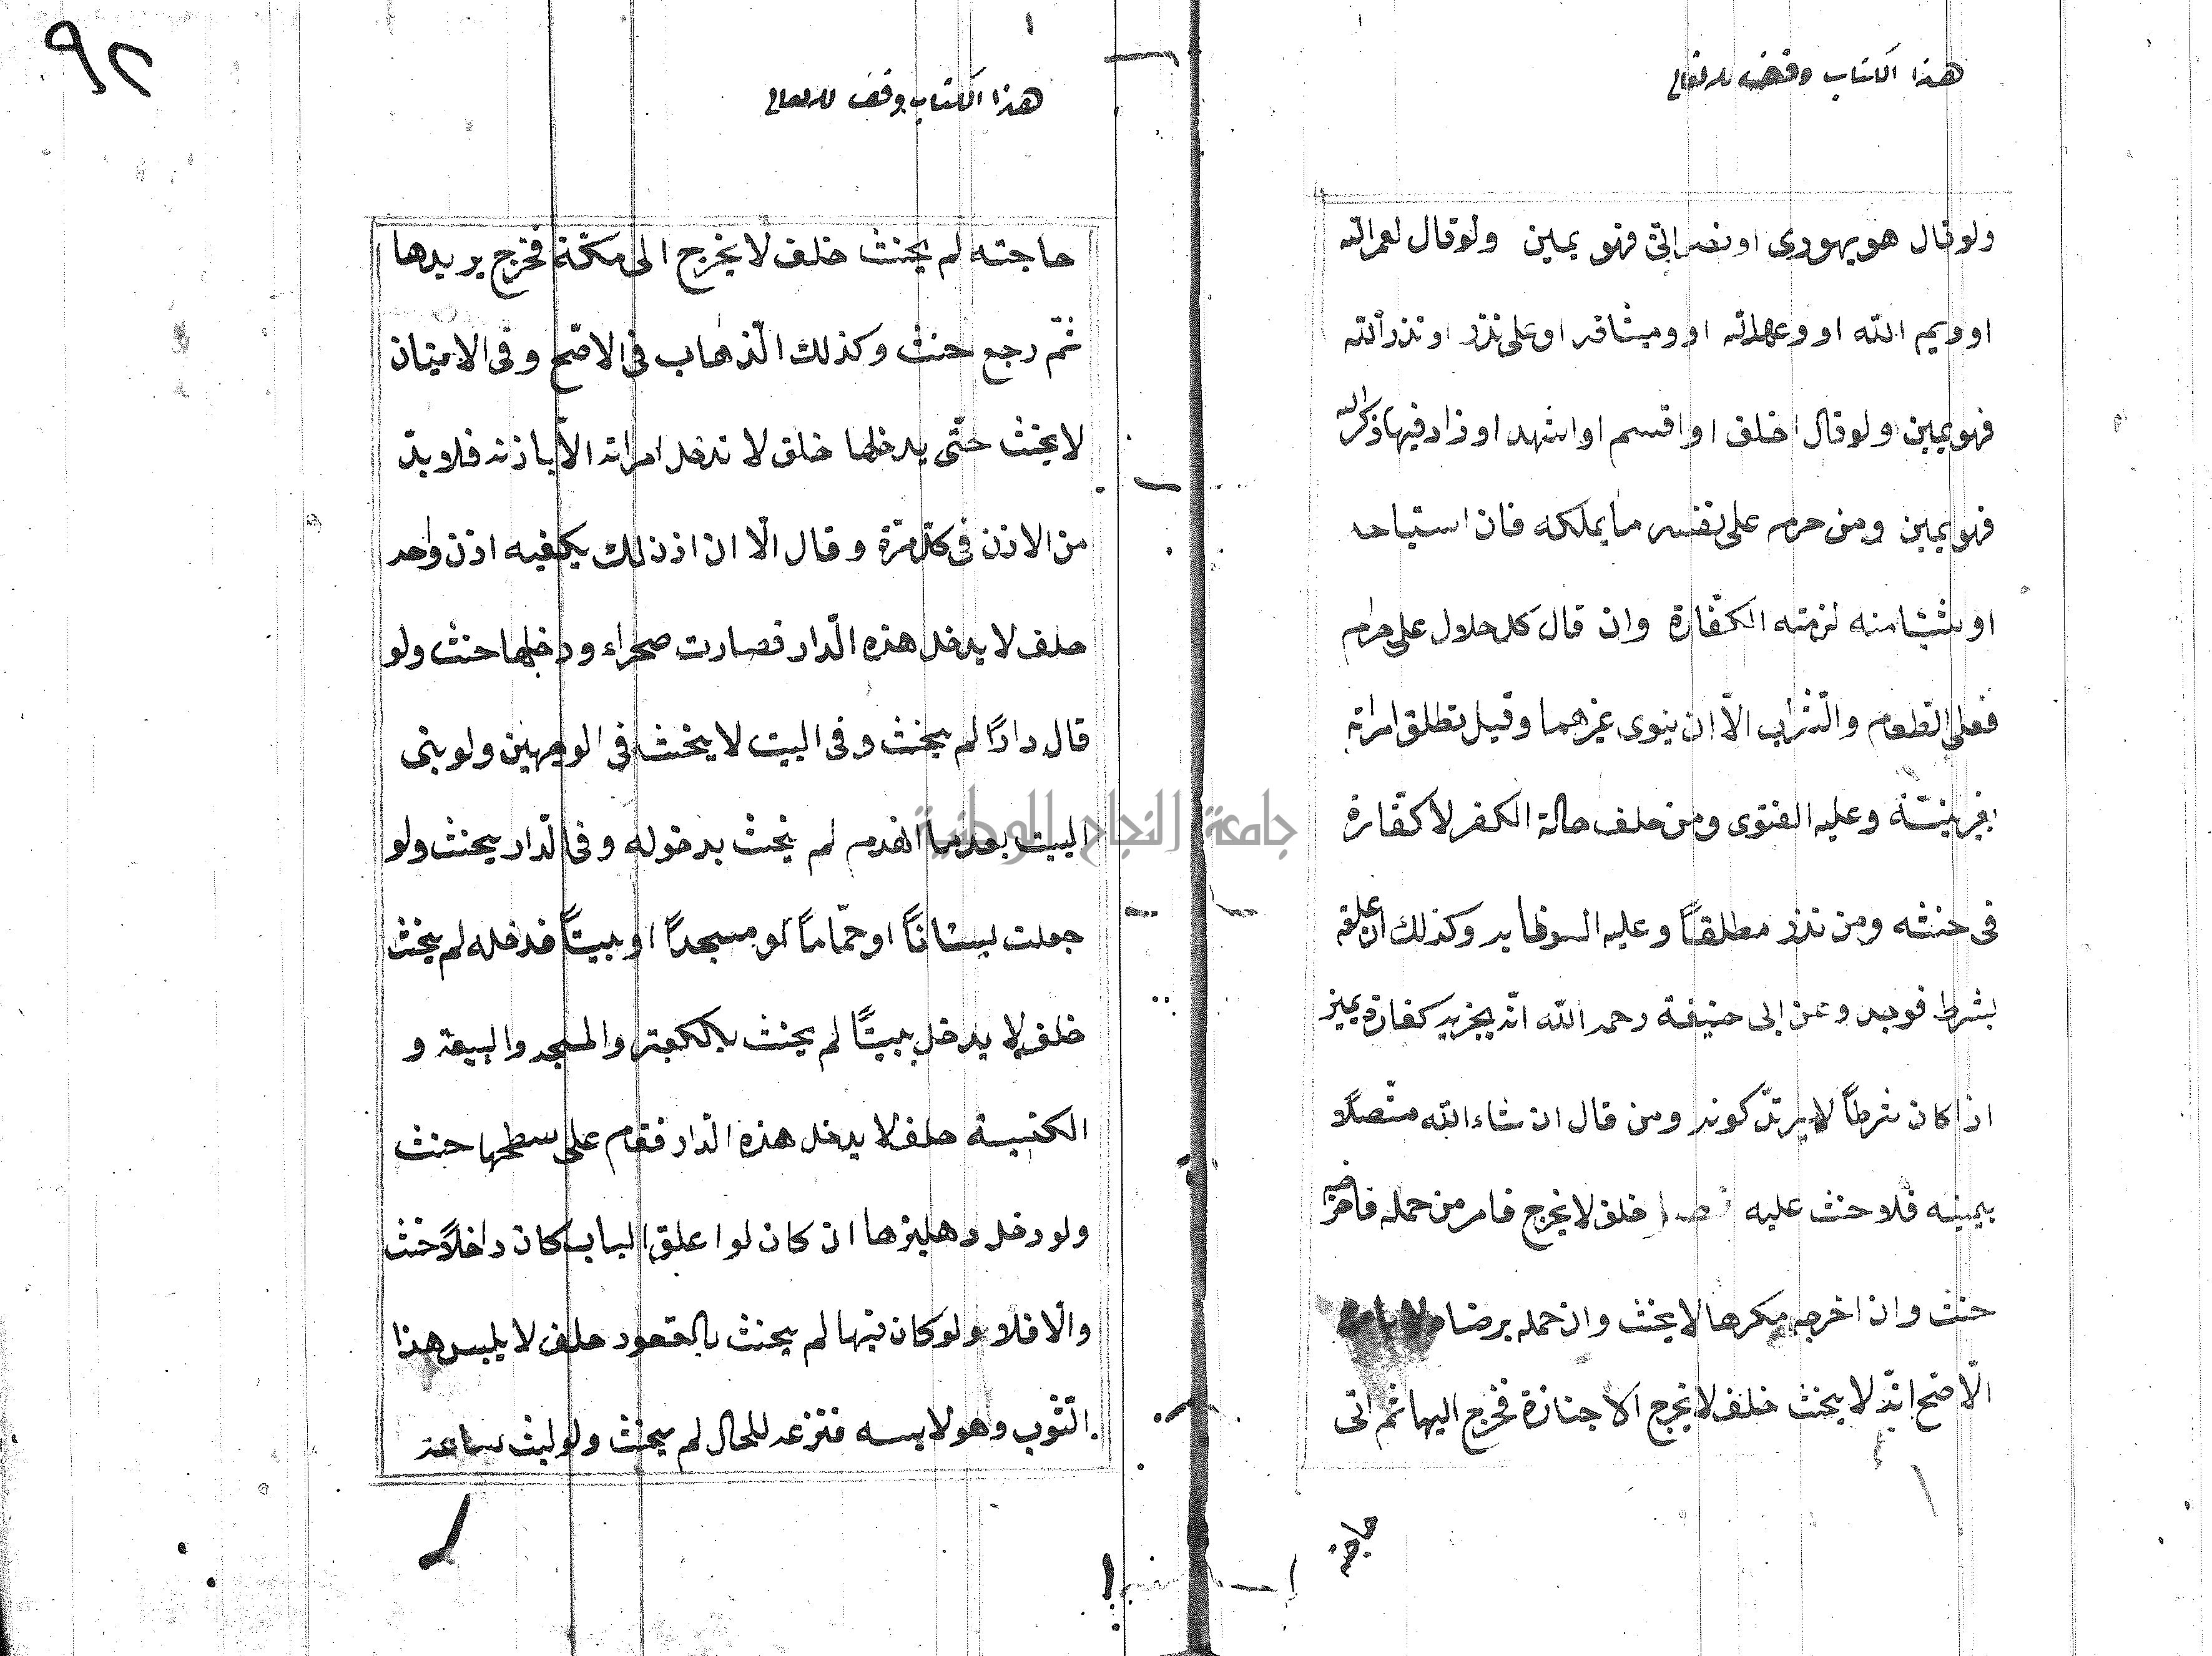 هذا الكتاب وقف لله تعالى
ولو قال هو يهودى او نصرانى فهو يمين ولو قال لعمر الله
او وايم الله او وعهد الله او وميثاقه او على نذر او نذر الله
فهو يمين ولو قال احلف او اقسم او اشهد او زاد فيها ذكر الله
فهو يمين ومن حرم على نفسه ما يملكه فان استباحه
او شيئا منه لزمته الكفّارة وان قال كل حلال على حرام
فعلى الطعام والشّراب الاّ ان ينوى غيرهما وقيل تطلق امراته
بغير نيّة وعليه الفتوى ومن حلف حالة الكفر لا كفّارة
فى حنثه ومن نذر مطلقاً وعليه الوفا به وكذلك ان علقه
بشرط فوجد وعن ابى حنيفة رحمه الله انّه يجزيه كفارة يمين
اذا كان شرطاً لا يريد كونه ومن قال ان شاء الله متّصلاً
بيمينه فلا حنث عليه فصل حلف لا يخرج فامر من حمله فاخرجه
حنث وان اخرجه مكرها لا يحنث وان حمله برضاه لا بامره
الاّصح انّه لا يحنث حلف لا يخرج الا جنازة فخرج اليها ثم اتى
حاجته
٩٢
هذا الكتاب وقف لله تعالى
حاجته لم يحنث حلف لا يخرج الى مكّة فخرج يريدها
ثمّ رجع حنث وكذلك الّذهاب فى الاصّح وفى الاتيان
لا يحنث حتّى يدخلها حلف لا تدخل امراته الاّ باذنه فلا بدّ
من الاذن فى كل مرّة وقال الّا ان اذن لك يكفيه اذن واحد
حلف لا يدخل هذه الّدار فصارت صحراء ودخلها حنث ولو
قال داراً لم يحنث وفى البيت لا يحنث فى الوجهين ولو بنى
البيت بعد ما انهدم لم يحنث بدخوله وفى الّدار يحنث ولو
جعلت بستاناً او حمّاماً او مسجداً او بيتاً فدخله لم يحنث
حلف لا يدخل بيتاً لم يحنث بالكعبة والمسجد والبيعة و
الكنيسة حلف لا يدخل هذه الّدار فقام على سطحها حنث
ولو دخل دهليزها ان كان لو اغلق الباب كان داخلاً حنث
والّا فلا ولو كان فيها لم يحنث بالقعود حلف لا يلبس هذا
الّثوب وهو لابسه فنزعه للحال لم يحنث ولو لبث ساعة
جامعة النجاح الوطنية